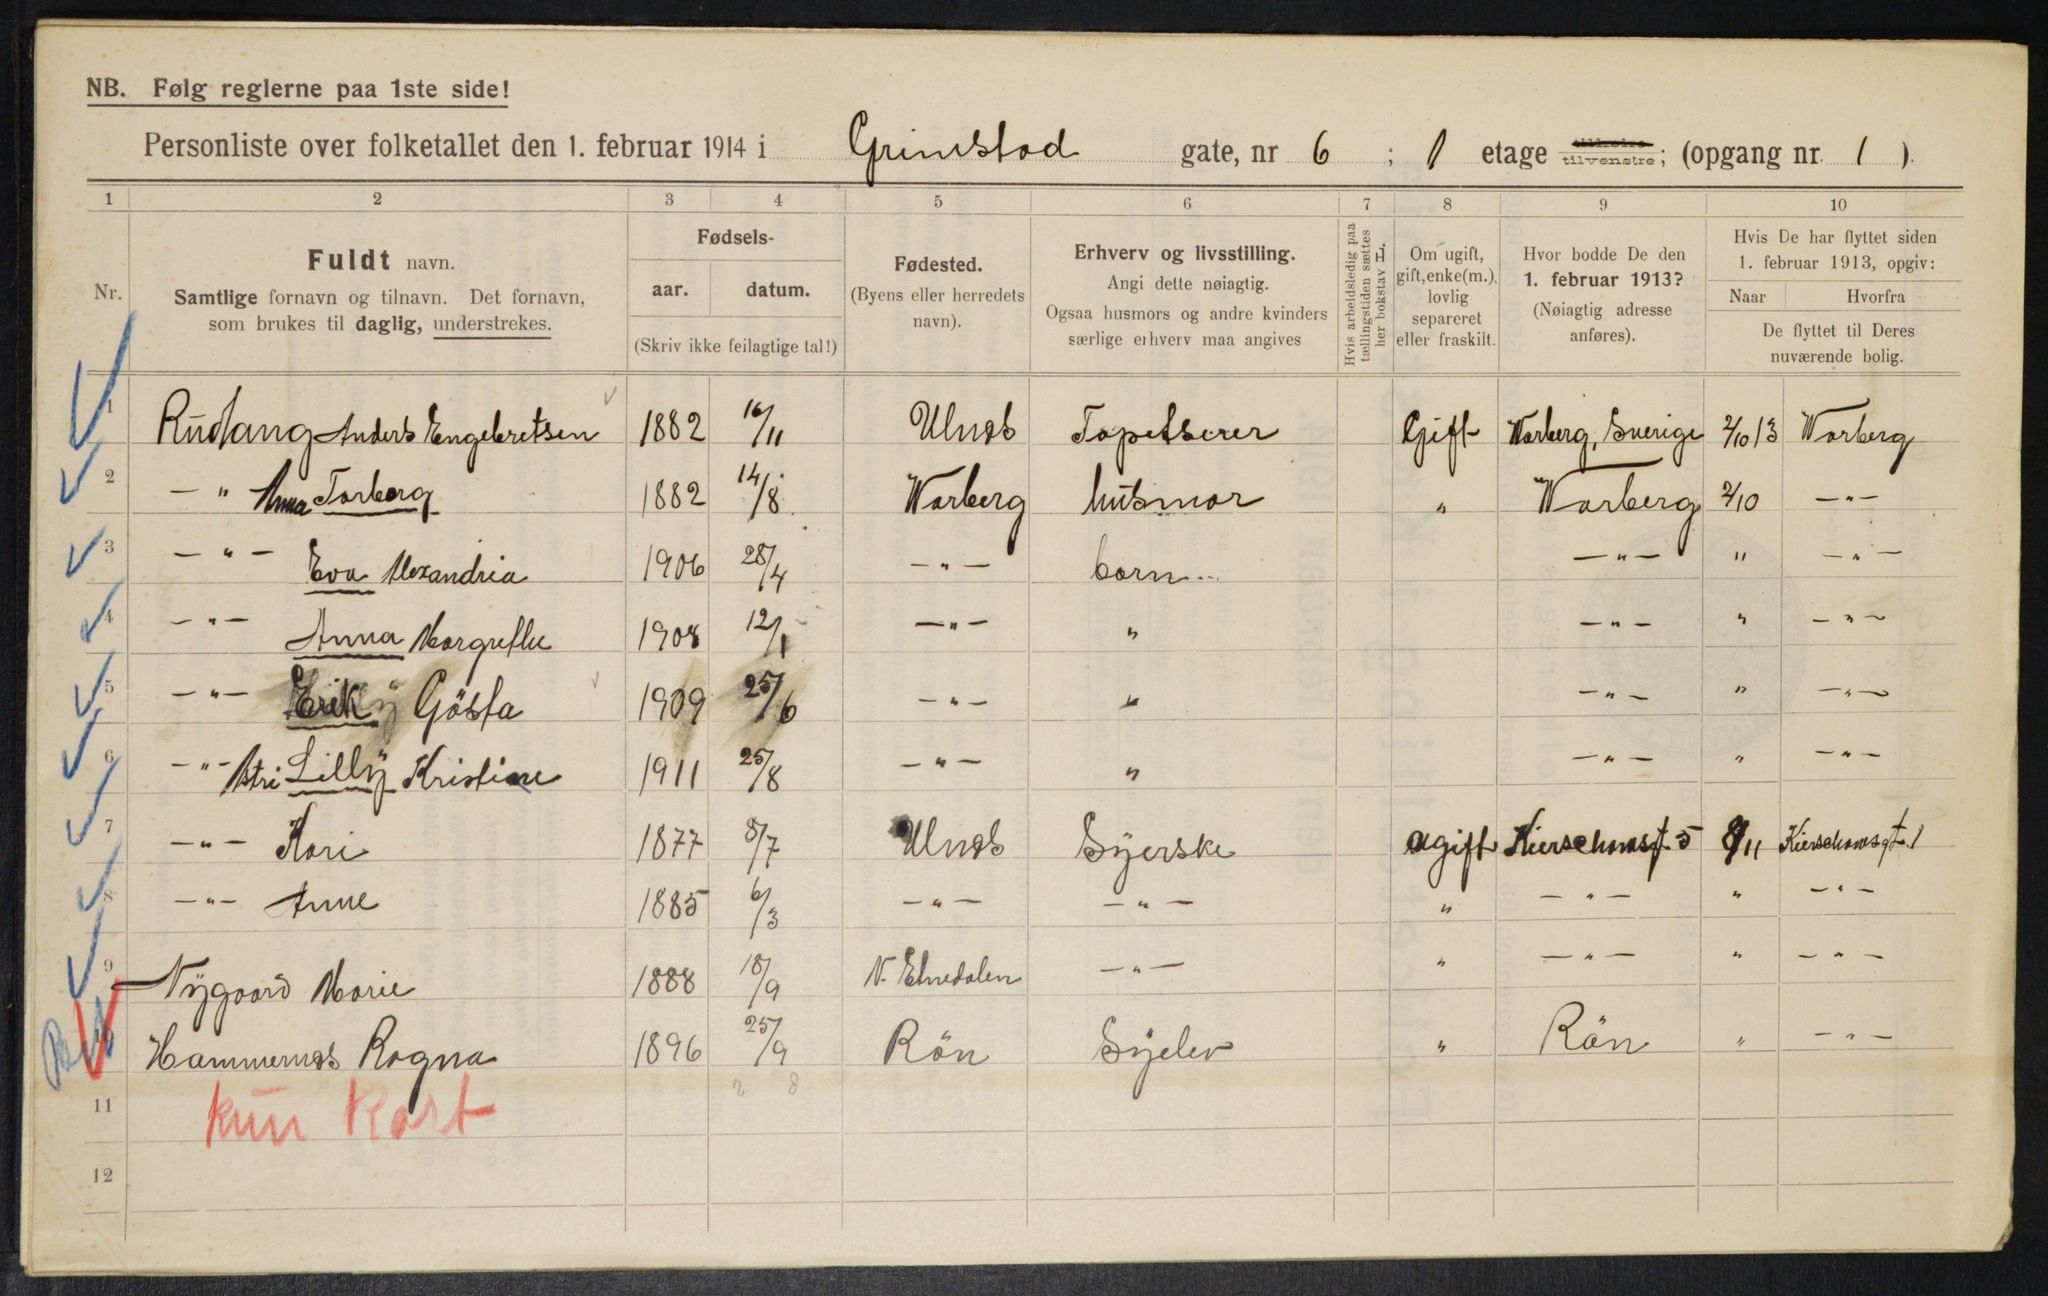 NB. Følg reglerne paa 1ste side!
Personliste over folketallet den 1. februar 1914 i Grimstad gate, nr 6 ; 1 etage tilhøire tilvenstre; (opgang nr. 1 ).
1 2 3 4 5 6 7 8 9 10
Nr.
Fuldt navn.
Samtlige fornavn og tilnavn. Det fornavn,
som brukes til daglig, understrekes.
Fødsels-
aar. datum.
(Skriv ikke feilagtige tal!)
Fødested.
(Byens eller herredets
navn).
Erhverv og livsstilling.
Angi dette nøiagtig.
Ogsaa husmors og andre kvinders
særlige erhverv maa angives
Hvis arbeidsledig paa
tællingstiden sættes
her bokstav L.
Om ugift,
gift, enke(m.),
lovlig
separeret
eller fraskilt.
Hvor bodde De den
1. februar 1913?
(Nøiagtig adresse
anføres).
Hvis De har flyttet siden
1. februar 1913, opgiv:
Naar Hvorfra
De flyttet til Deres
nuværende bolig.
1 Rudlang Anders Engebretsen 1882 16/11 Ulnæs Tapetserer Gift Warberg, Sverige 2/10 13 Warberg
2 — " Anna Torborg 1882 14/8 Warberg husmor " Warberg 2/10 —"—
3 —"— Eva Alexandria 1906 28/4 —"— barn —"— " —"—
4 —"— Anna Margrethe 1908 12/1 —"— " —"— " —"—
5 —"— Erik Gösta 1909 25/6 —"— " —"— " —"—
6 —"— Astri Lilly Kristine 1911 25/8 —"— " —"— " —"—
7 —"— Kari 1877 8/7 Ulnæs Syerske ugift Kierschowsgt 5 8/11 Kierschowsgt. 1
8 —"— Anne 1885 6/3 —"— —"— " —"— " —"—
9 Nygaard Marie 1888 18/9 N. Etnedalen —"— " —"— " —"—
10 Hammernæs Ragna 1896 25/9 Røn Syelev " Røn " —"—
11 kun Kort
12